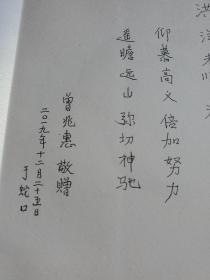 仰慕高义倍加努力
遥瞻远山弥切神驰
曾兆惠 敬赠
二〇一九年十二月二十五日
于蛇口